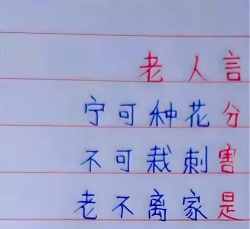 老人言
宁可种花分
不可栽刺害
老不离家是